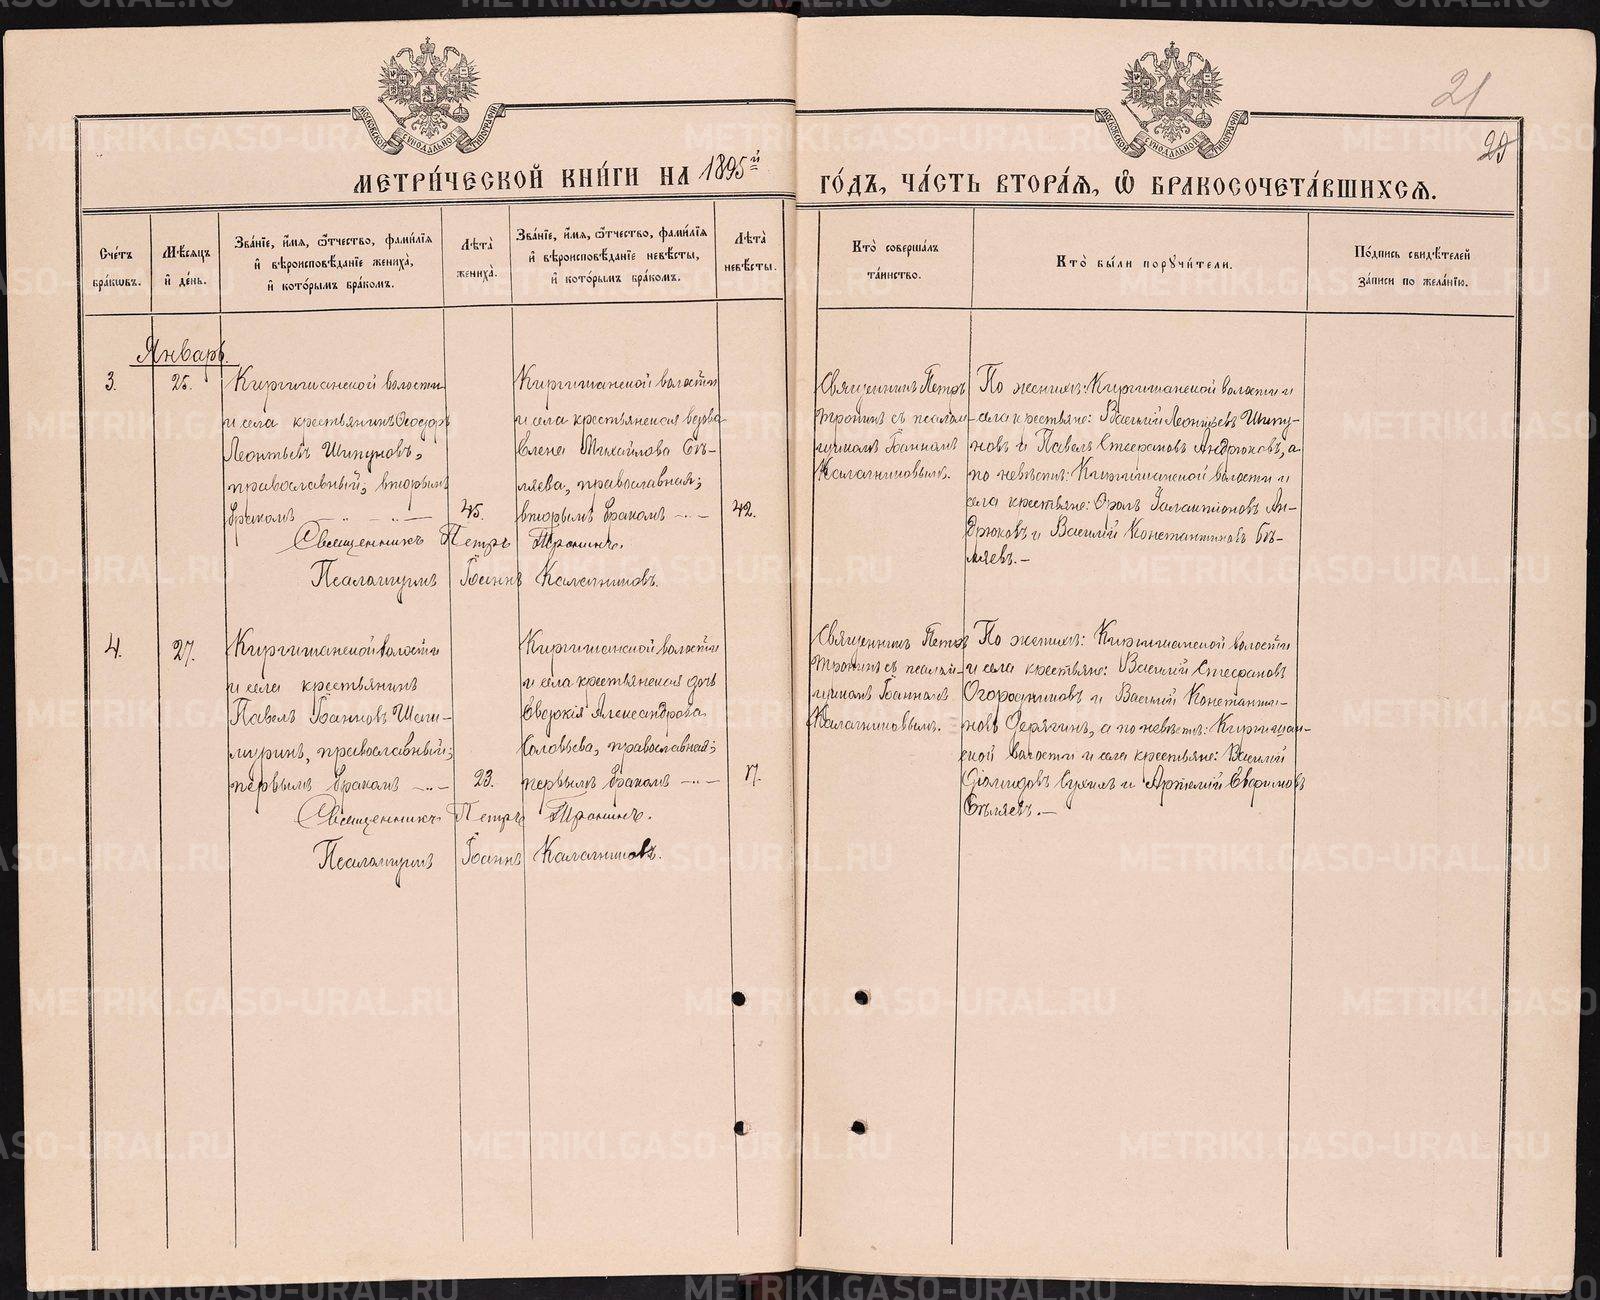 21
29
МОСКОВСКОЙ СѴНОДАЛЬНОЙ ТИПОГРАФІИ
МОСКОВСКОЙ СѴНОДАЛЬНОЙ ТИПОГРАФІИ
МЕТРИ́ЧЕСКОЙ КНИ́ГИ НА 1895й ГО́ДЪ, ЧА́СТЬ ВТОРА́Ѧ, Ѡ҆ БРАКОСОЧЕТА́ВШИХСѦ.
Сче́тъ бра́кωвъ.
Мѣ́сяцъ и҆ де́нь.
Зва́нїе, и҆́мя, ѻ҆́тчество, фами́лїя и҆ вѣроисповѣ́данїе жениха̀, и҆ кото́рымъ бра́комъ.
Лѣта̀ жениха̀.
Зва́нїе, и҆́мя, ѻ҆́тчество, фами́лїя и҆ вѣроисповѣ́данїе невѣ́сты, и҆ кото́рымъ бра́комъ.
Лѣта̀ невѣ́сты.
Кто̀ соверша́лъ та́инство.
Кто̀ бы́ли порꙋчи́тели.
По́дпись свидѣ́телей за́писи по жела́нїю.
Январь.
3.
25.
Киргишанской волости
и села крестьянинъ Ѳеодоръ
Леонтьевъ Шипуновъ,
православный; вторымъ
бракомъ
45.
Киргишанской волости
и села крестьянская вдова
Елена Михайлова Бѣ-
ляева, православная;
вторымъ бракомъ
42.
Священникъ Петръ
Тронинъ съ псалом-
щикомъ Іоанномъ
Калачниковымъ.
По женихѣ: Киргишанской волости и
села крестьяне: Василій Леонтьевъ Шипу-
новъ и Павелъ Стефановъ Андрюковъ, а
по невѣстѣ: Киргишанской волости и
села крестьяне: Фролъ Галактіоновъ Ан-
дрюковъ и Василій Константиновъ Бѣ-
ляевъ.-
Священникъ Петръ Тронинъ.
Псаломщикъ Іоаннъ Калачниковъ.
4.
27.
Киргишанской волости
и села крестьянинъ
Павелъ Іоанновъ Шаги-
муринъ, православный;
первымъ бракомъ
23.
Киргишанской волости
и села крестьянская дочь
Евдокія Александрова
Соловьева, православная;
первымъ бракомъ
17.
Священникъ Петръ
Тронинъ съ псалом-
щикомъ Іоанномъ
Калачниковымъ.
По женихѣ: Киргишанской волости
и села крестьяне: Василій Стефановъ
Огородниковъ и Василій Константи-
новъ Дерягинъ, а по невѣстѣ: Киргишан-
ской волости и села крестьяне: Василій
Діомидовъ Сухихъ и Артемій Евфимовъ
Бѣляевъ.-
Священникъ Петръ Тронинъ.
Псаломщикъ Іоаннъ Калачниковъ.
METRIKI.GASO-URAL.RU